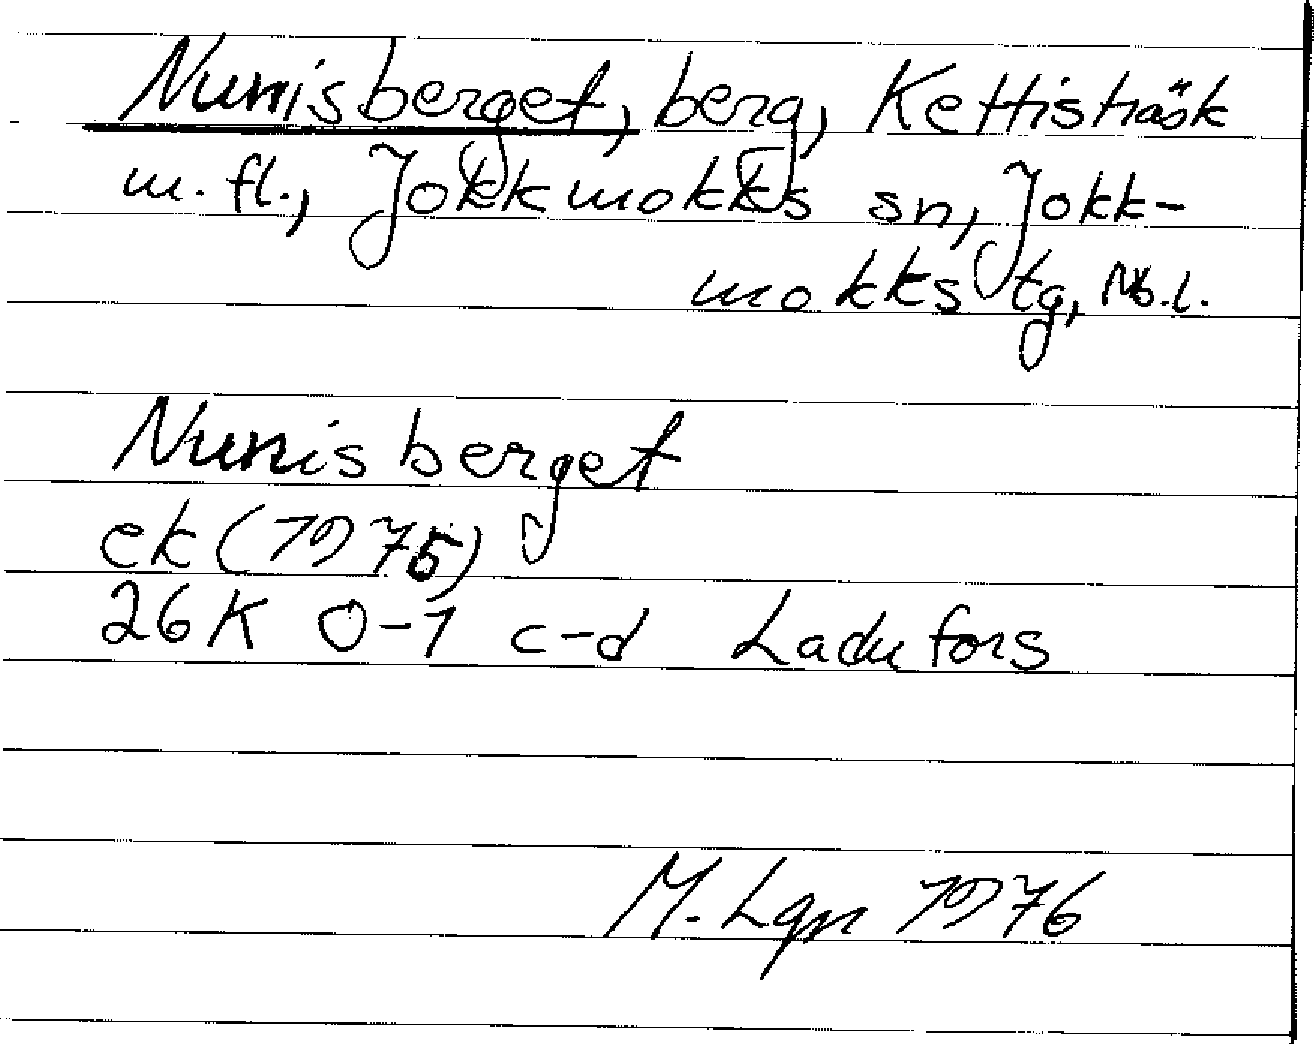 Nunisberget, berg, Kettisträsk
m. fl., Jokkmokks sn, Jokk-
mokks tg, Nb.l.
Nunisberget
ek (1975)
26K 0-1 c-d Ladufors
M. Lgn 1976